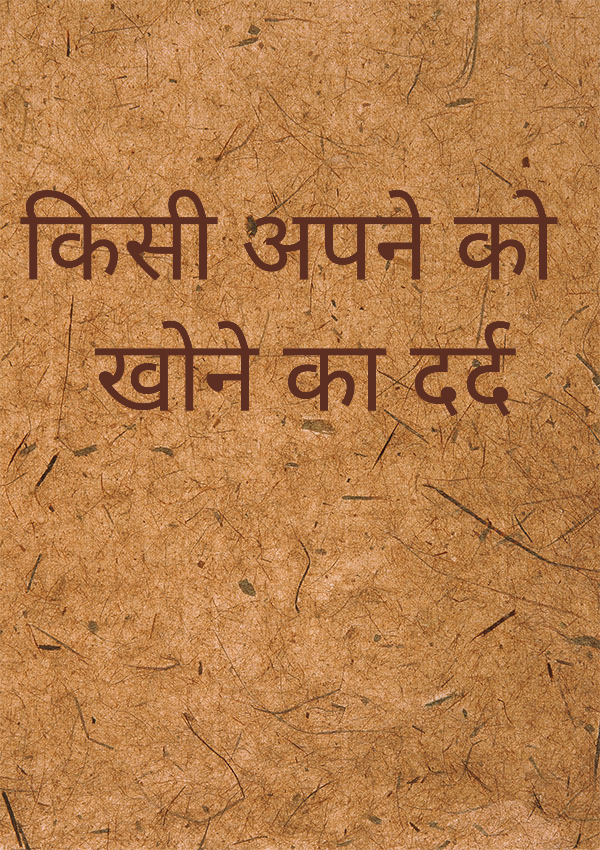 किसी अपने को
खोने का दर्द